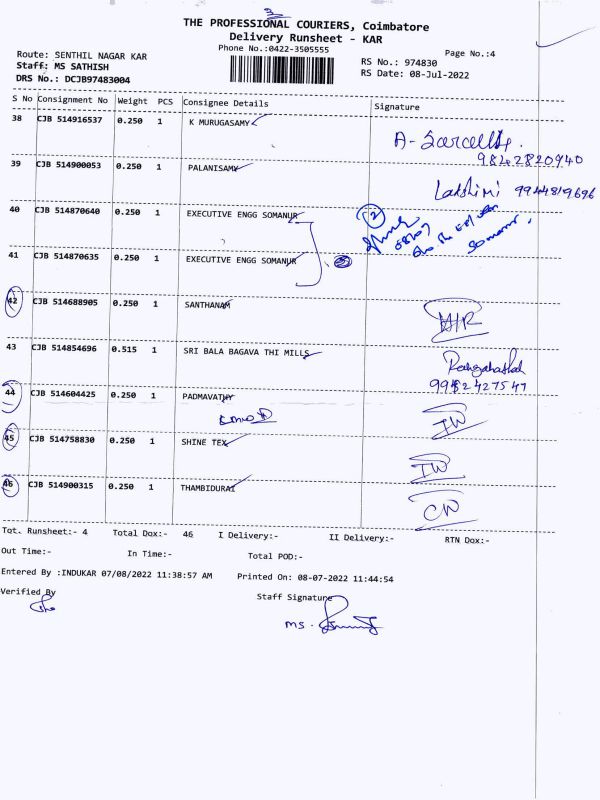 3
THE PROFESSIONAL COURIERS, Coimbatore
Delivery Runsheet - KAR
Phone No.:0422-3505555
Page No.:4
Route: SENTHIL NAGAR KAR
RS No.: 974830
Staff: MS SATHISH
RS Date: 08-Jul-2022
DRS No.: DCJB97483004
S No Consignment No Weight PCS Consignee Details Signature
38 CJB 514916537 0.250 1 K MURUGASAMY
9842820940
39 CJB 514900053 0.250 1 PALANISAMY
Lakshimi 9944819696
40 CJB 514870640 0.250 1 EXECUTIVE ENGG SOMANUR
2
Somanur.
41 CJB 514870635 0.250 1 EXECUTIVE ENGG SOMANUR
42 CJB 514688905 0.250 1 SANTHANAM
43 CJB 514854696 0.515 1 SRI BALA BAGAVA THI MILLS
44 CJB 514604425 0.250 1 PADMAVATHY
IW
45 CJB 514758830 0.250 1 SHINE TEX
IW
46 CJB 514900315 0.250 1 THAMBIDURAI
CN
Tot. Runsheet:- 4 Total Dox:- 46 I Delivery:- II Delivery:- RTN Dox:-
Out Time:- In Time:- Total POD:-
Entered By :INDUKAR 07/08/2022 11:38:57 AM Printed On: 08-07-2022 11:44:54
Verified By
Staff Signature
MS.